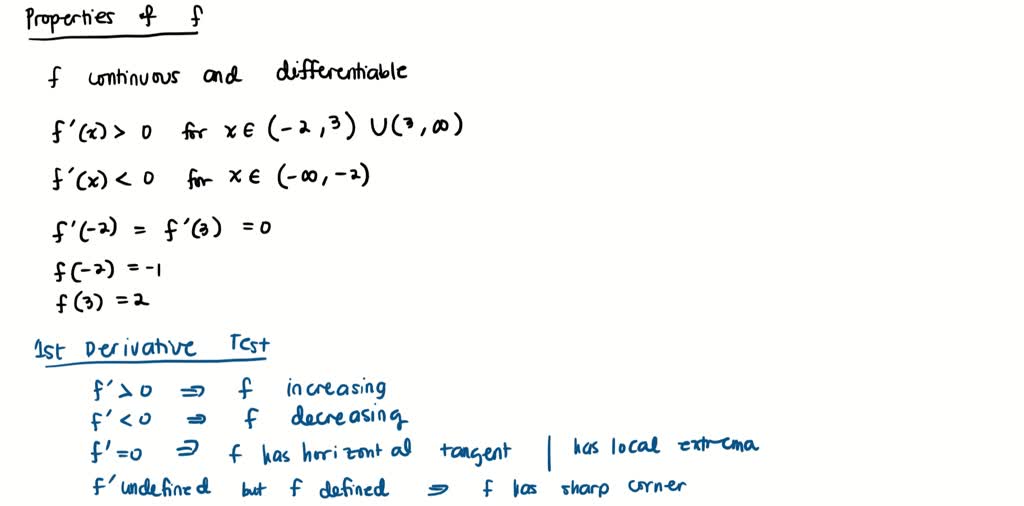 Properties of f
f continuous and differentiable
f'(x) > 0 for x ∈ (-2, 3) ∪ (3, ∞)
f'(x) < 0 for x ∈ (-∞, -2)
f'(-2) = f'(3) = 0
f(-2) = -1
f(3) = 2
1st Derivative Test
f' > 0 ⇒ f increasing
f' < 0 ⇒ f decreasing
f' = 0 ⇒ f has horizontal tangent | has local extrema
f' undefined but f defined ⇒ f has sharp corner